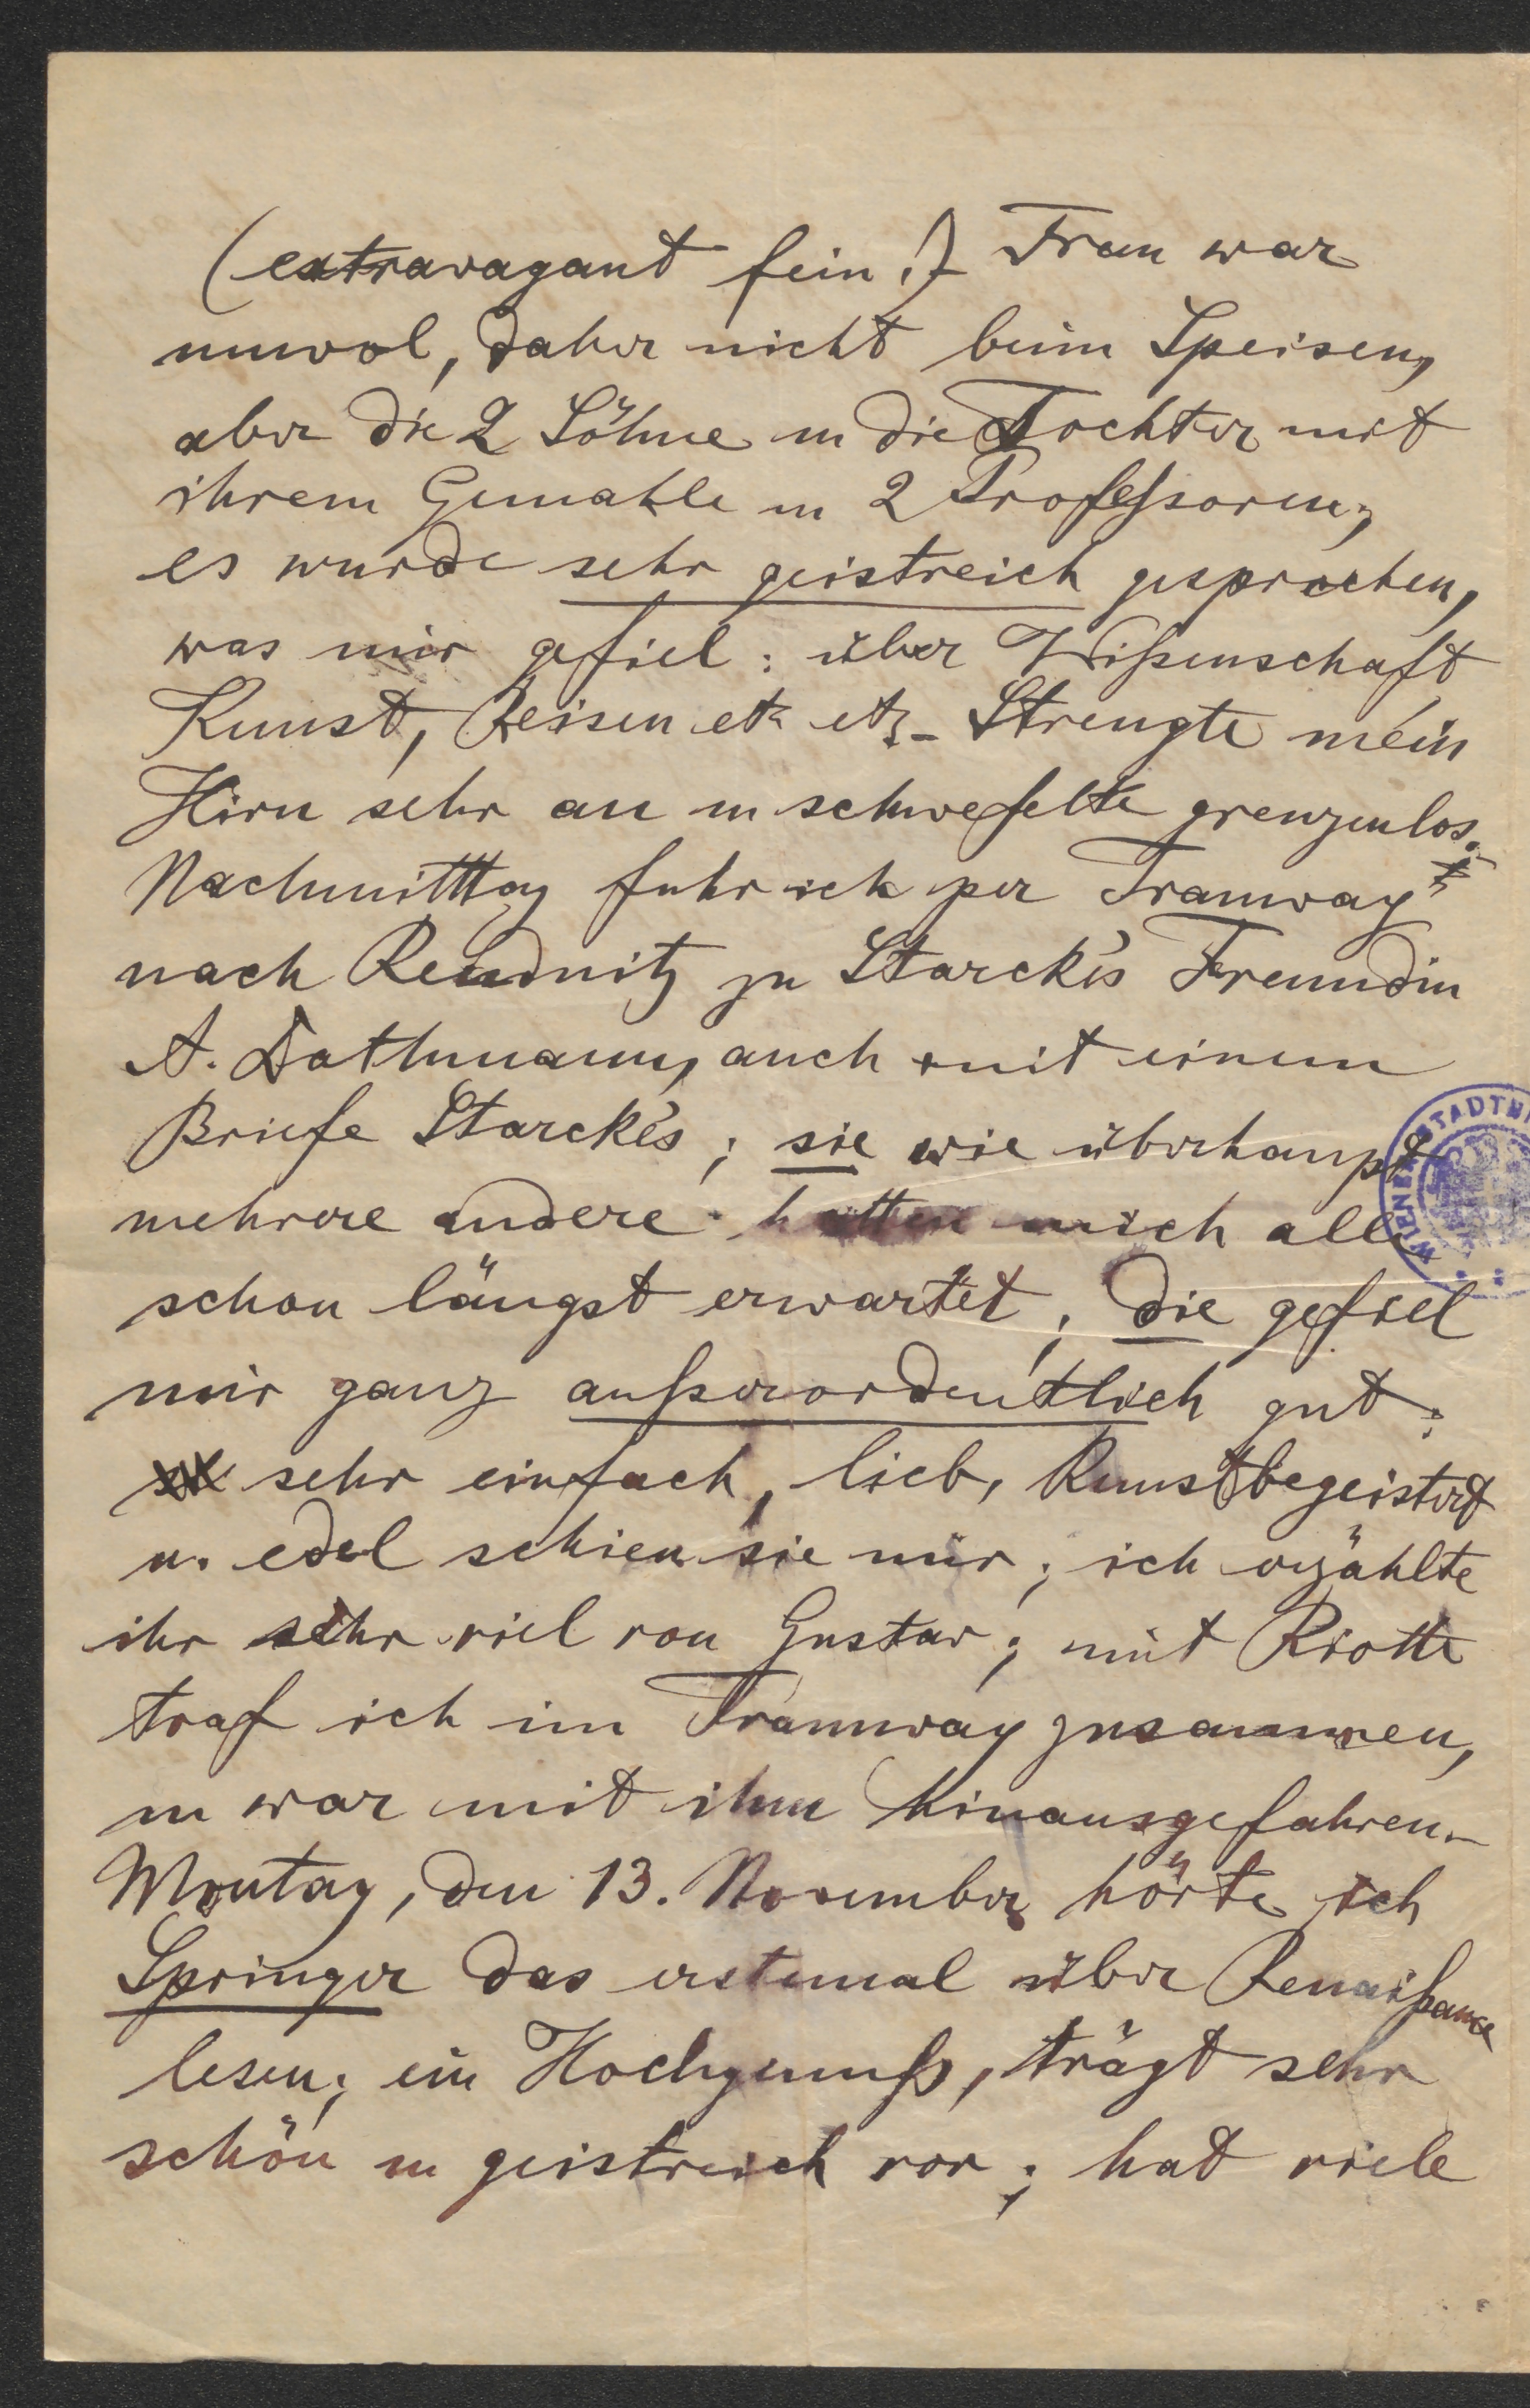 (extravagant fein!) Frau war
unwol, daher nicht beim Speisen,
aber die 2 Söhne u die Tochter mit
ihrem Gemahle u 2 Profeßoren;
es wurde sehr geistreich gesprochen,
was mir gefiel: über Wißenschaft
Kunst, Reisen etz etz – Strengte mein
Hirn sehr an u schwefelte grenzenlos. –
Nachmitttag fuhr ich per Tramway
nach Reudnitz zu Starcke's Freundin
A. Dathmann, auch mit einem
Briefe Starcke's; sie wie überhaupt
mehrere andere hatten mich alle
schon längst erwartet; die gefiel
mir ganz außerordentlich gut;
sehr einfach, lieb, Kunstbegeistert
u. edel schien sie mir; ich erzählte
ihr sehr viel von Gustav; mit Riotte
traf ich im Tramway zusammen,
u war mit ihm hinausgefahren. –
Montag, den 13. November hörte ich
Springer das erstemal über Renaißance
lesen; ein Hochgenuß, trägt sehr
schön u geistreich vor; hat viele
WIENER STADTBI